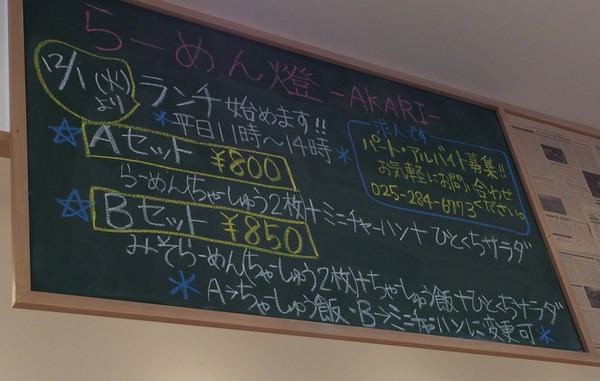 らーめん燈 -AKARI-
12/1(火)より
ランチ始めます!!
*平日11時～14時*
求人です
パート・アルバイト募集!!
お気軽にお問い合わせ
025-284-6773ください。
☆Aセット ¥800
らーめん(ちゃーしゅう2枚)+ミニチャーハン+ひとくちサラダ
☆Bセット ¥850
みそらーめん(ちゃーしゅう2枚)+ちゃーしゅう飯+ひとくちサラダ
*A→ちゃーしゅう飯・B→ミニチャーハンに変更可*